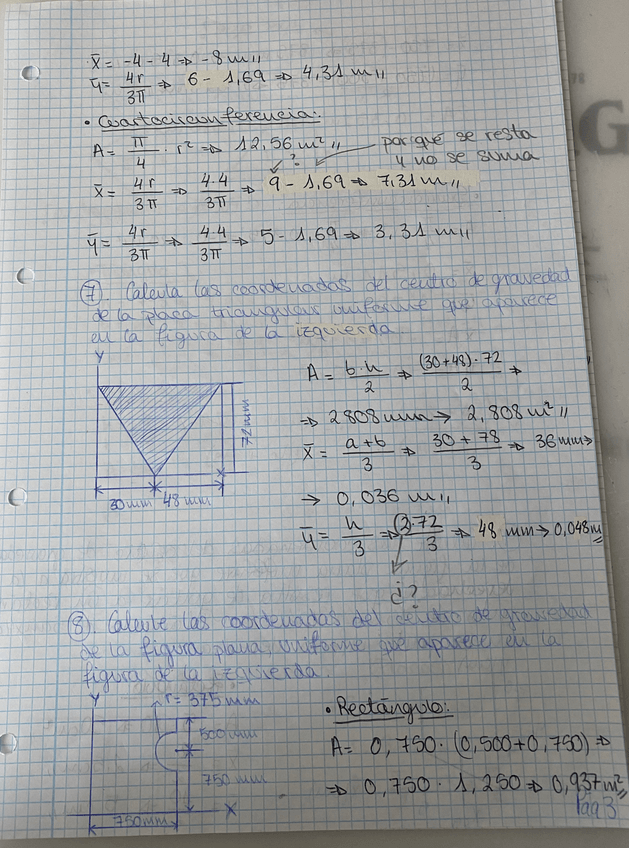 x̄ = -4 - 4 ⇒ -8 m,,
ȳ = 4r/3π ⇒ 6 - 1,69 ⇒ 4,31 m,,
• Cuartocircunferencia:
A = π/4 · r² ⇒ 12,56 m²,,
por qué se resta
y no se suma
?
x̄ = 4r/3π ⇒ 4·4/3π ⇒ 9 - 1,69 ⇒ 7,31 m,,
ȳ = 4r/3π ⇒ 4·4/3π ⇒ 5 - 1,69 ⇒ 3,31 m,,
⑦. Calcula las coordenadas del centro de gravedad
de la placa triangular uniforme que aparece
en la figura de la izquierda.
Y
72 mm
X
30 mm 48 mm
A = b·h/2 ⇒ (30+48)·72/2 ⇒
⇒ 2808 mm → 2,808 m²,,
x̄ = a+b/3 ⇒ 30+78/3 ⇒ 36 mm →
→ 0,036 m,,
ȳ = h/3 ⇒ 2·72/3 ⇒ 48 mm → 0,048 m
¿?
⑧. Calcule las coordenadas del centro de gravedad
de la figura plana uniforme que aparece en la
figura de la izquierda.
Y
r = 375 mm
500 mm
750 mm
X
750 mm
• Rectángulo:
A = 0,750 · (0,500+0,750) ⇒
⇒ 0,750 · 1,250 ⇒ 0,937 m²,,
Pág 3
G